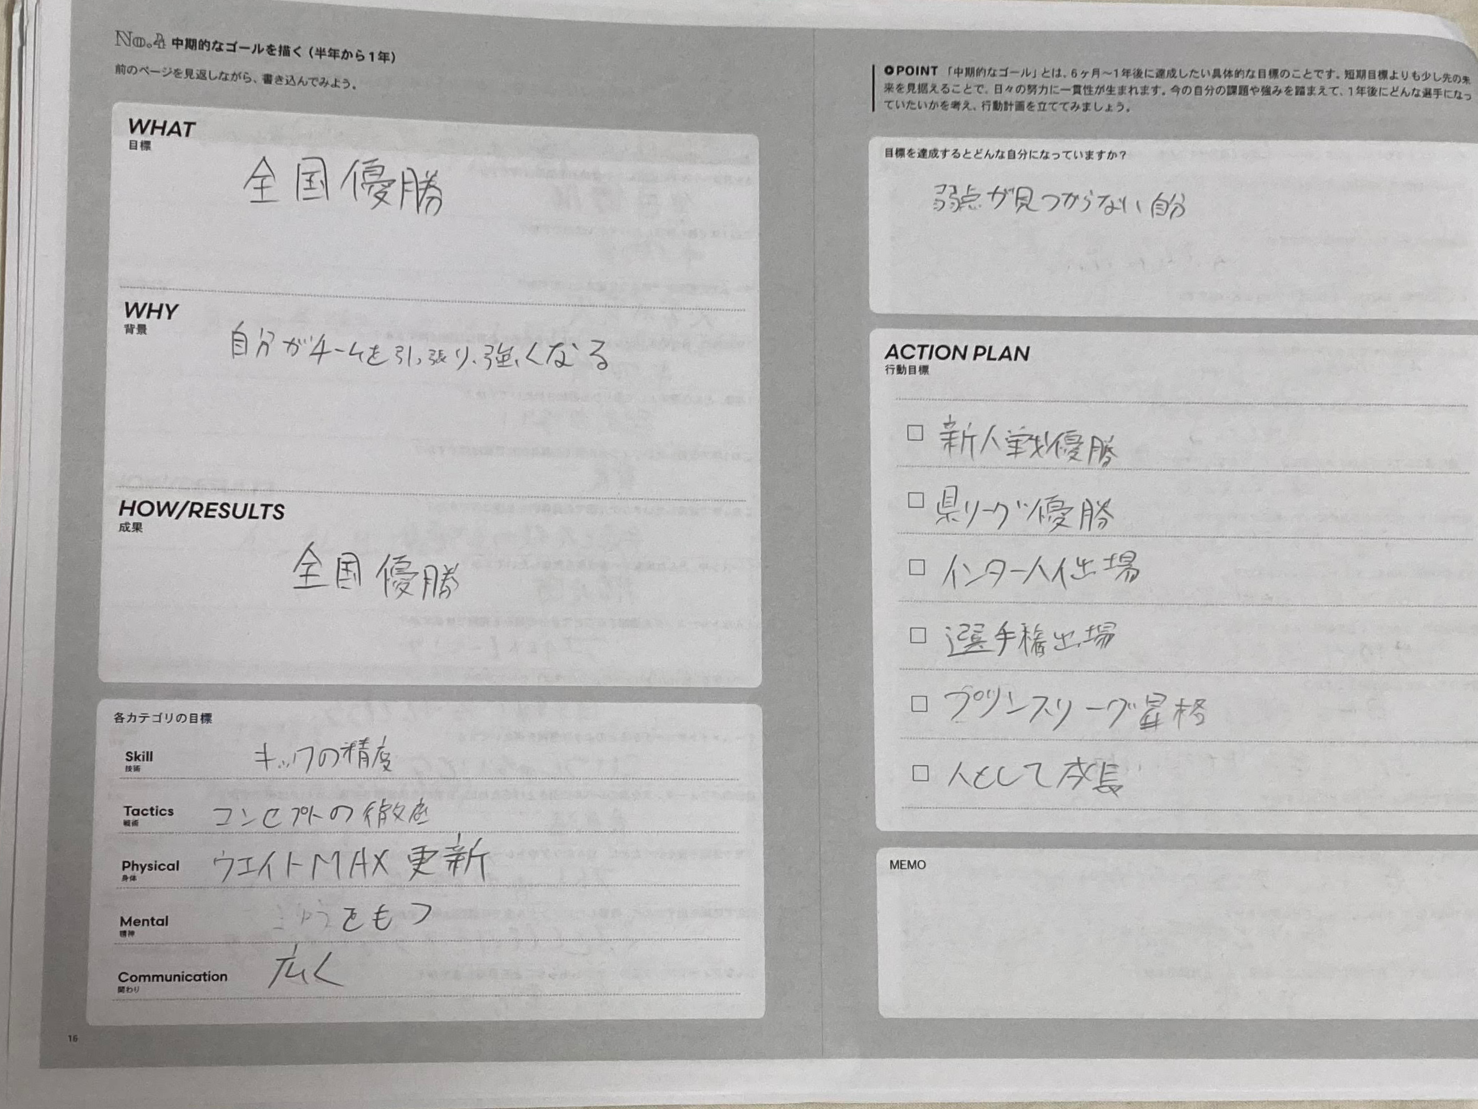 No.4 中期的なゴールを描く（半年から1年）
前のページを見返しながら、書き込んでみよう。
WHAT
目標
全国優勝
WHY
背景
自分がチームを引っ張り、強くなる
HOW/RESULTS
成果
全国優勝
各カテゴリの目標
Skill
技術
キックの精度
Tactics
戦術
コンセプトの徹底
Physical
身体
ウエイトMAX更新
Mental
精神
をもつ
Communication
関わり
広く
16
POINT 「中期的なゴール」とは、6ヶ月〜1年後に達成したい具体的な目標のことです。短期目標よりも少し先の未
来を見据えることで、日々の努力に一貫性が生まれます。今の自分の課題や強みを踏まえて、1年後にどんな選手になっ
ていたいかを考え、行動計画を立ててみましょう。
目標を達成するとどんな自分になっていますか？
弱点が見つからない自分
ACTION PLAN
行動目標
□ 新人戦優勝
□ 県リーグ優勝
□ インターハイ出場
□ 選手権出場
□ プリンスリーグ昇格
□ 人として成長
MEMO